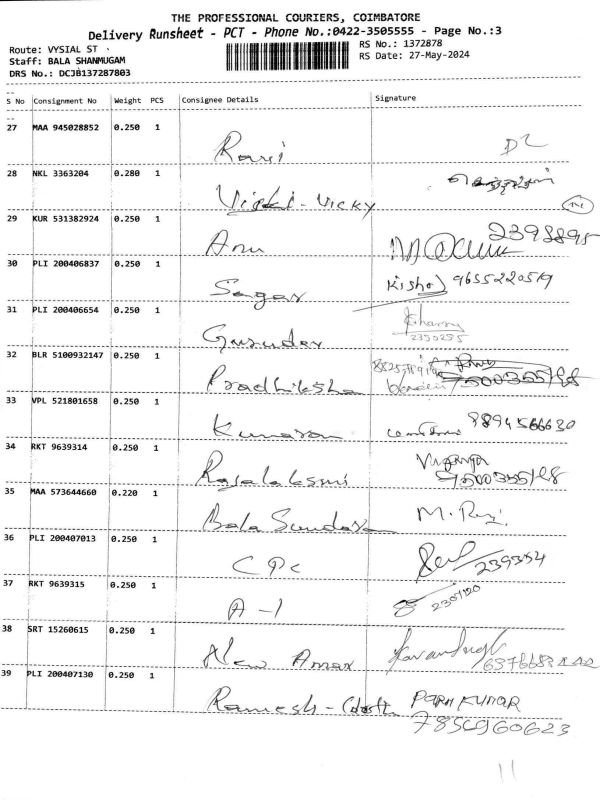 THE PROFESSIONAL COURIERS, COIMBATORE
Delivery Runsheet - PCT - Phone No.:0422-3505555 - Page No.:3
Route: VYSIAL ST
RS No.: 1372878
Staff: BALA SHANMUGAM
RS Date: 27-May-2024
DRS No.: DCJB137287803
S No Consignment No Weight PCS Consignee Details Signature
27 MAA 945028852 0.250 1 Ravi
28 NKL 3363204 0.280 1 Vicki - Vicky
29 KUR 531382924 0.250 1 Anu 2398895
30 PLI 200406837 0.250 1 Sagar Kishor 9655220519
31 PLI 200406654 0.250 1 Gurudev
32 BLR 5100932147 0.250 1 Pradhiksha
33 VPL 521801658 0.250 1 Kumaran 8894566630
34 RKT 9639314 0.250 1 Rajalaksmi
35 MAA 573644660 0.220 1 Bala Sundara M. Raj.
36 PLI 200407013 0.250 1 CPC 239354
37 RKT 9639315 0.250 1 A-1
38 SRT 15260615 0.250 1 New Amar
39 PLI 200407130 0.250 1 Ramesh - PARA KUMAR
7854960623